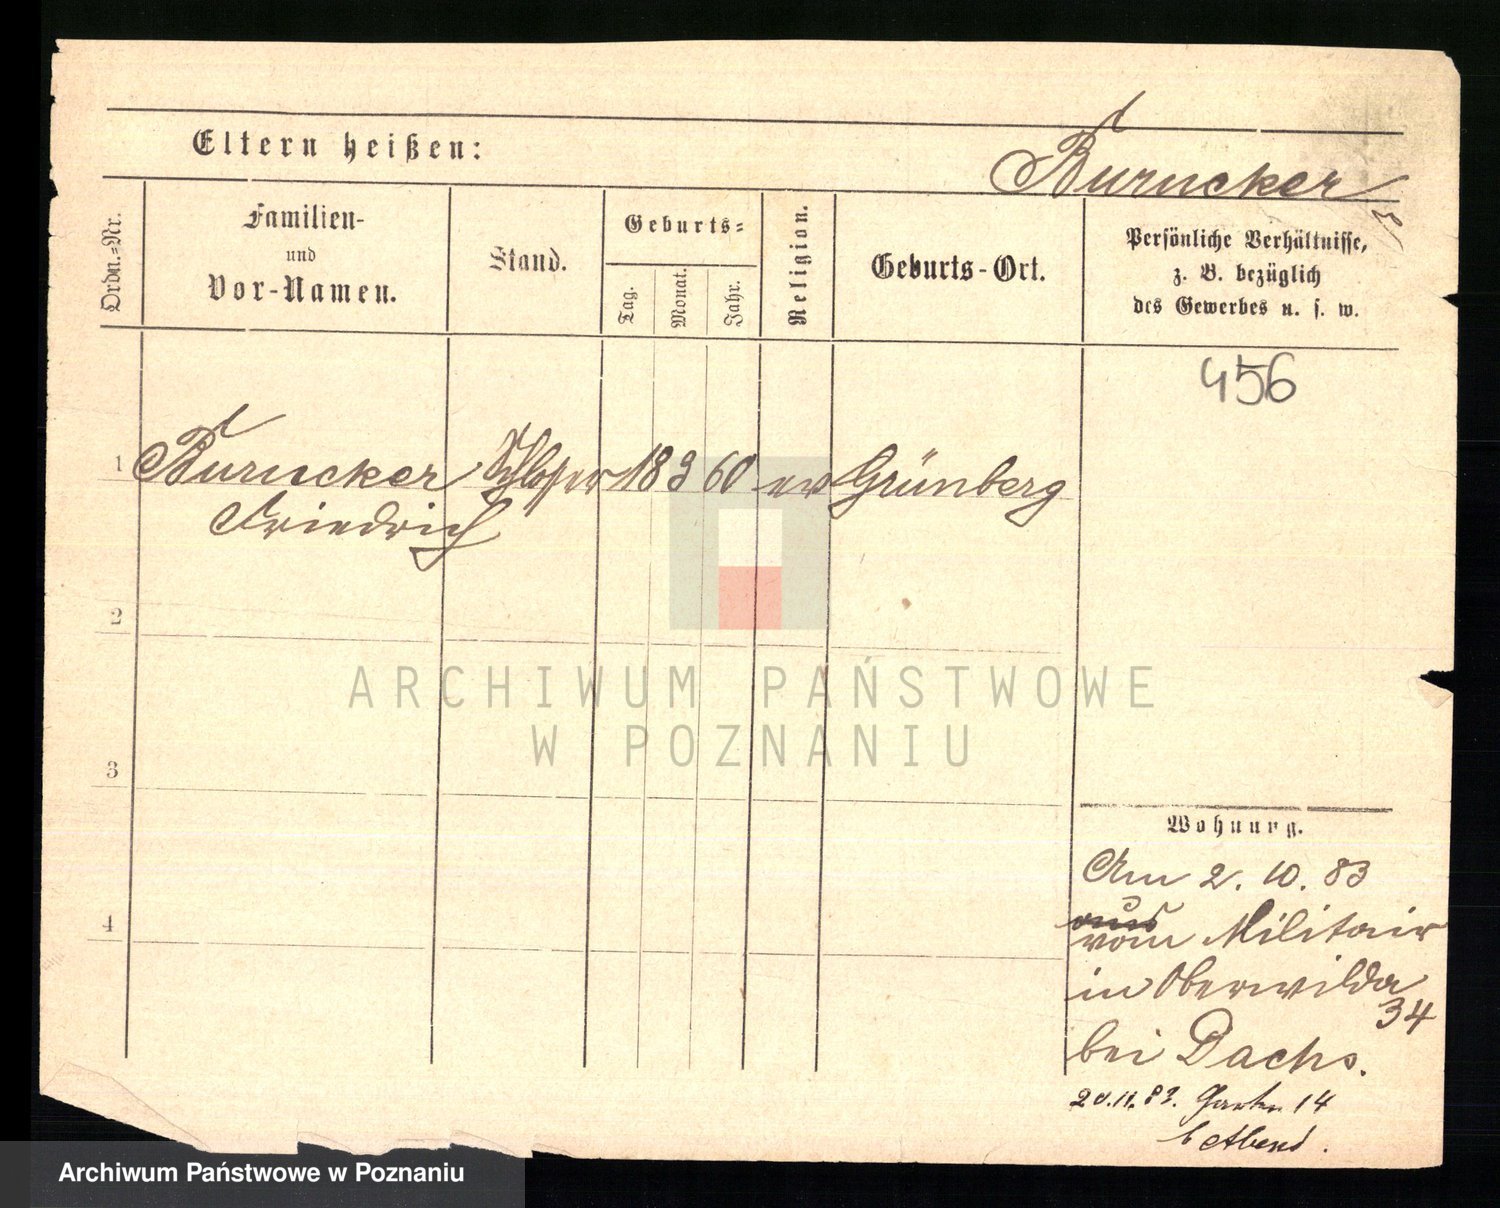 Eltern heißen:
Burucker
Ordn.=Nr.
Familien-
und
Vor-Namen.
Stand.
Geburts=
Tag.
Monat.
Jahr.
Religion.
Geburts-Ort.
Persönliche Verhältnisse,
z. B. bezüglich
des Gewerbes u. s. w.
456
1 Burucker Schlosser 18 3 60 ev Grünberg
Friedrich
2
3
4
ARCHIWUM PAŃSTWOWE
W POZNANIU
Wohnung.
Am 2. 10. 83
aus
vom Militair
in Oberwilda
34
bei Dachs.
20.11.83. Garten 14
b Abend.
Archiwum Państwowe w Poznaniu